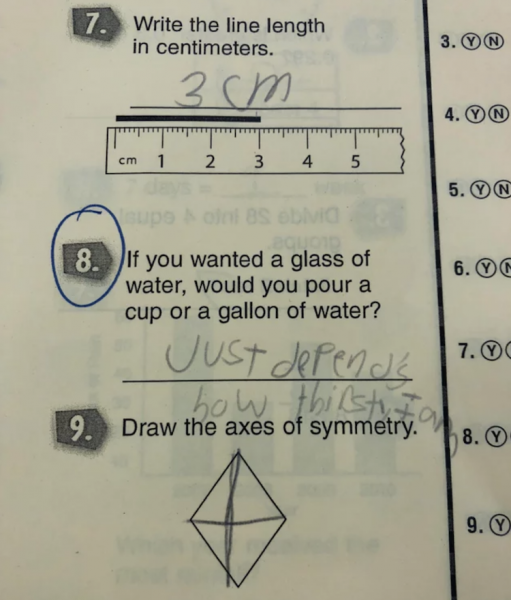 7. Write the line length
in centimeters.
3 cm
cm 1 2 3 4 5
8. If you wanted a glass of
water, would you pour a
cup or a gallon of water?
Just depends
how thirsty I am
9. Draw the axes of symmetry.
3. Y N
4. Y N
5. Y N
6. Y N
7. Y
8. Y
9. Y